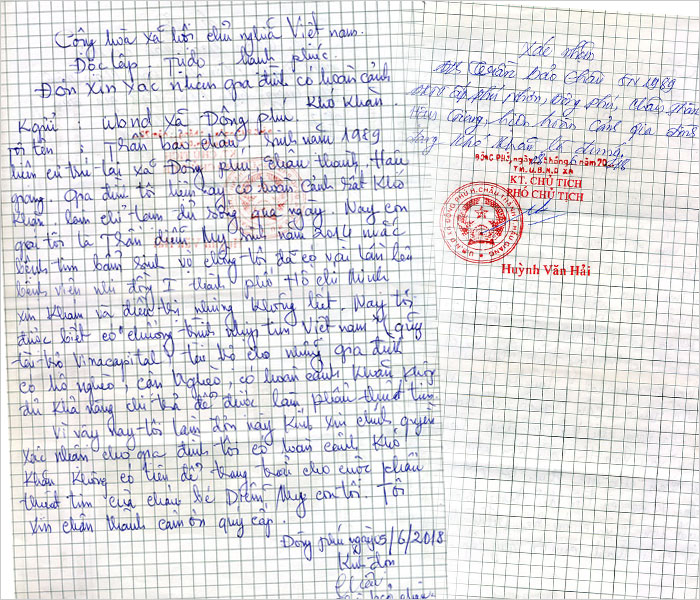 Cộng hòa xã hội chủ nghĩa Việt nam.
Độc lập. Tự do - hành phúc.
Đơn xin xác nhận gia đình có hoàn cảnh
khó khăn.
Kgửi : wbnd xã Đông phú.
tên : Trần bảo châu, sinh năm 1989
hiện cư trú tại xã Đông phú, châu thành, Hậu
giang. Gia đình tôi hiện nay có hoàn cảnh rất khó
khăn làm chỉ tạm đủ sống qua ngày. Nay con
gái tôi là Trần diễm My sinh năm 2014 mắc
bệnh tim bẩm sinh vợ chồng tôi đã có vài lần lên
bệnh viện nhi đồng I thành phố Hồ chí Minh
xin khám và điều trị nhưng không hết. Nay tôi
được biết có chương trình nhịp tim Việt nam (quỹ
tài trợ Vinacapital) tài trợ cho những gia đình
có hộ nghèo, cận nghèo, có hoàn cảnh khó khăn không
đủ khả năng chi trả để được làm phẩu thuật tim
Vì vậy nay tôi làm đơn này kính xin chính quyền
xác nhận cho gia đình tôi có hoàn cảnh khó
khăn không có tiền để trang trải cho cuộc phẩu
thuật tim của cháu bé Diễm My con tôi. Tôi
xin chân thành cảm ơn quý cấp.
Đông phú ngày 5/6/2018
Kính đơn
xác nhận
Trần Bảo Châu SN 1989
ấp phú nhơn, Đông phú, châu thành
Hậu Giang, hiện hoàn cảnh gia đình
đang khó khăn là đúng.
ĐÔNG PHÚ, ngày tháng 6 năm 20
TM. U.B.N.D XÃ
KT. CHỦ TỊCH
PHÓ CHỦ TỊCH
U.B.N.D XÃ ĐÔNG PHÚ H. CHÂU THÀNH T. HẬU GIANG
Huỳnh Văn Hải